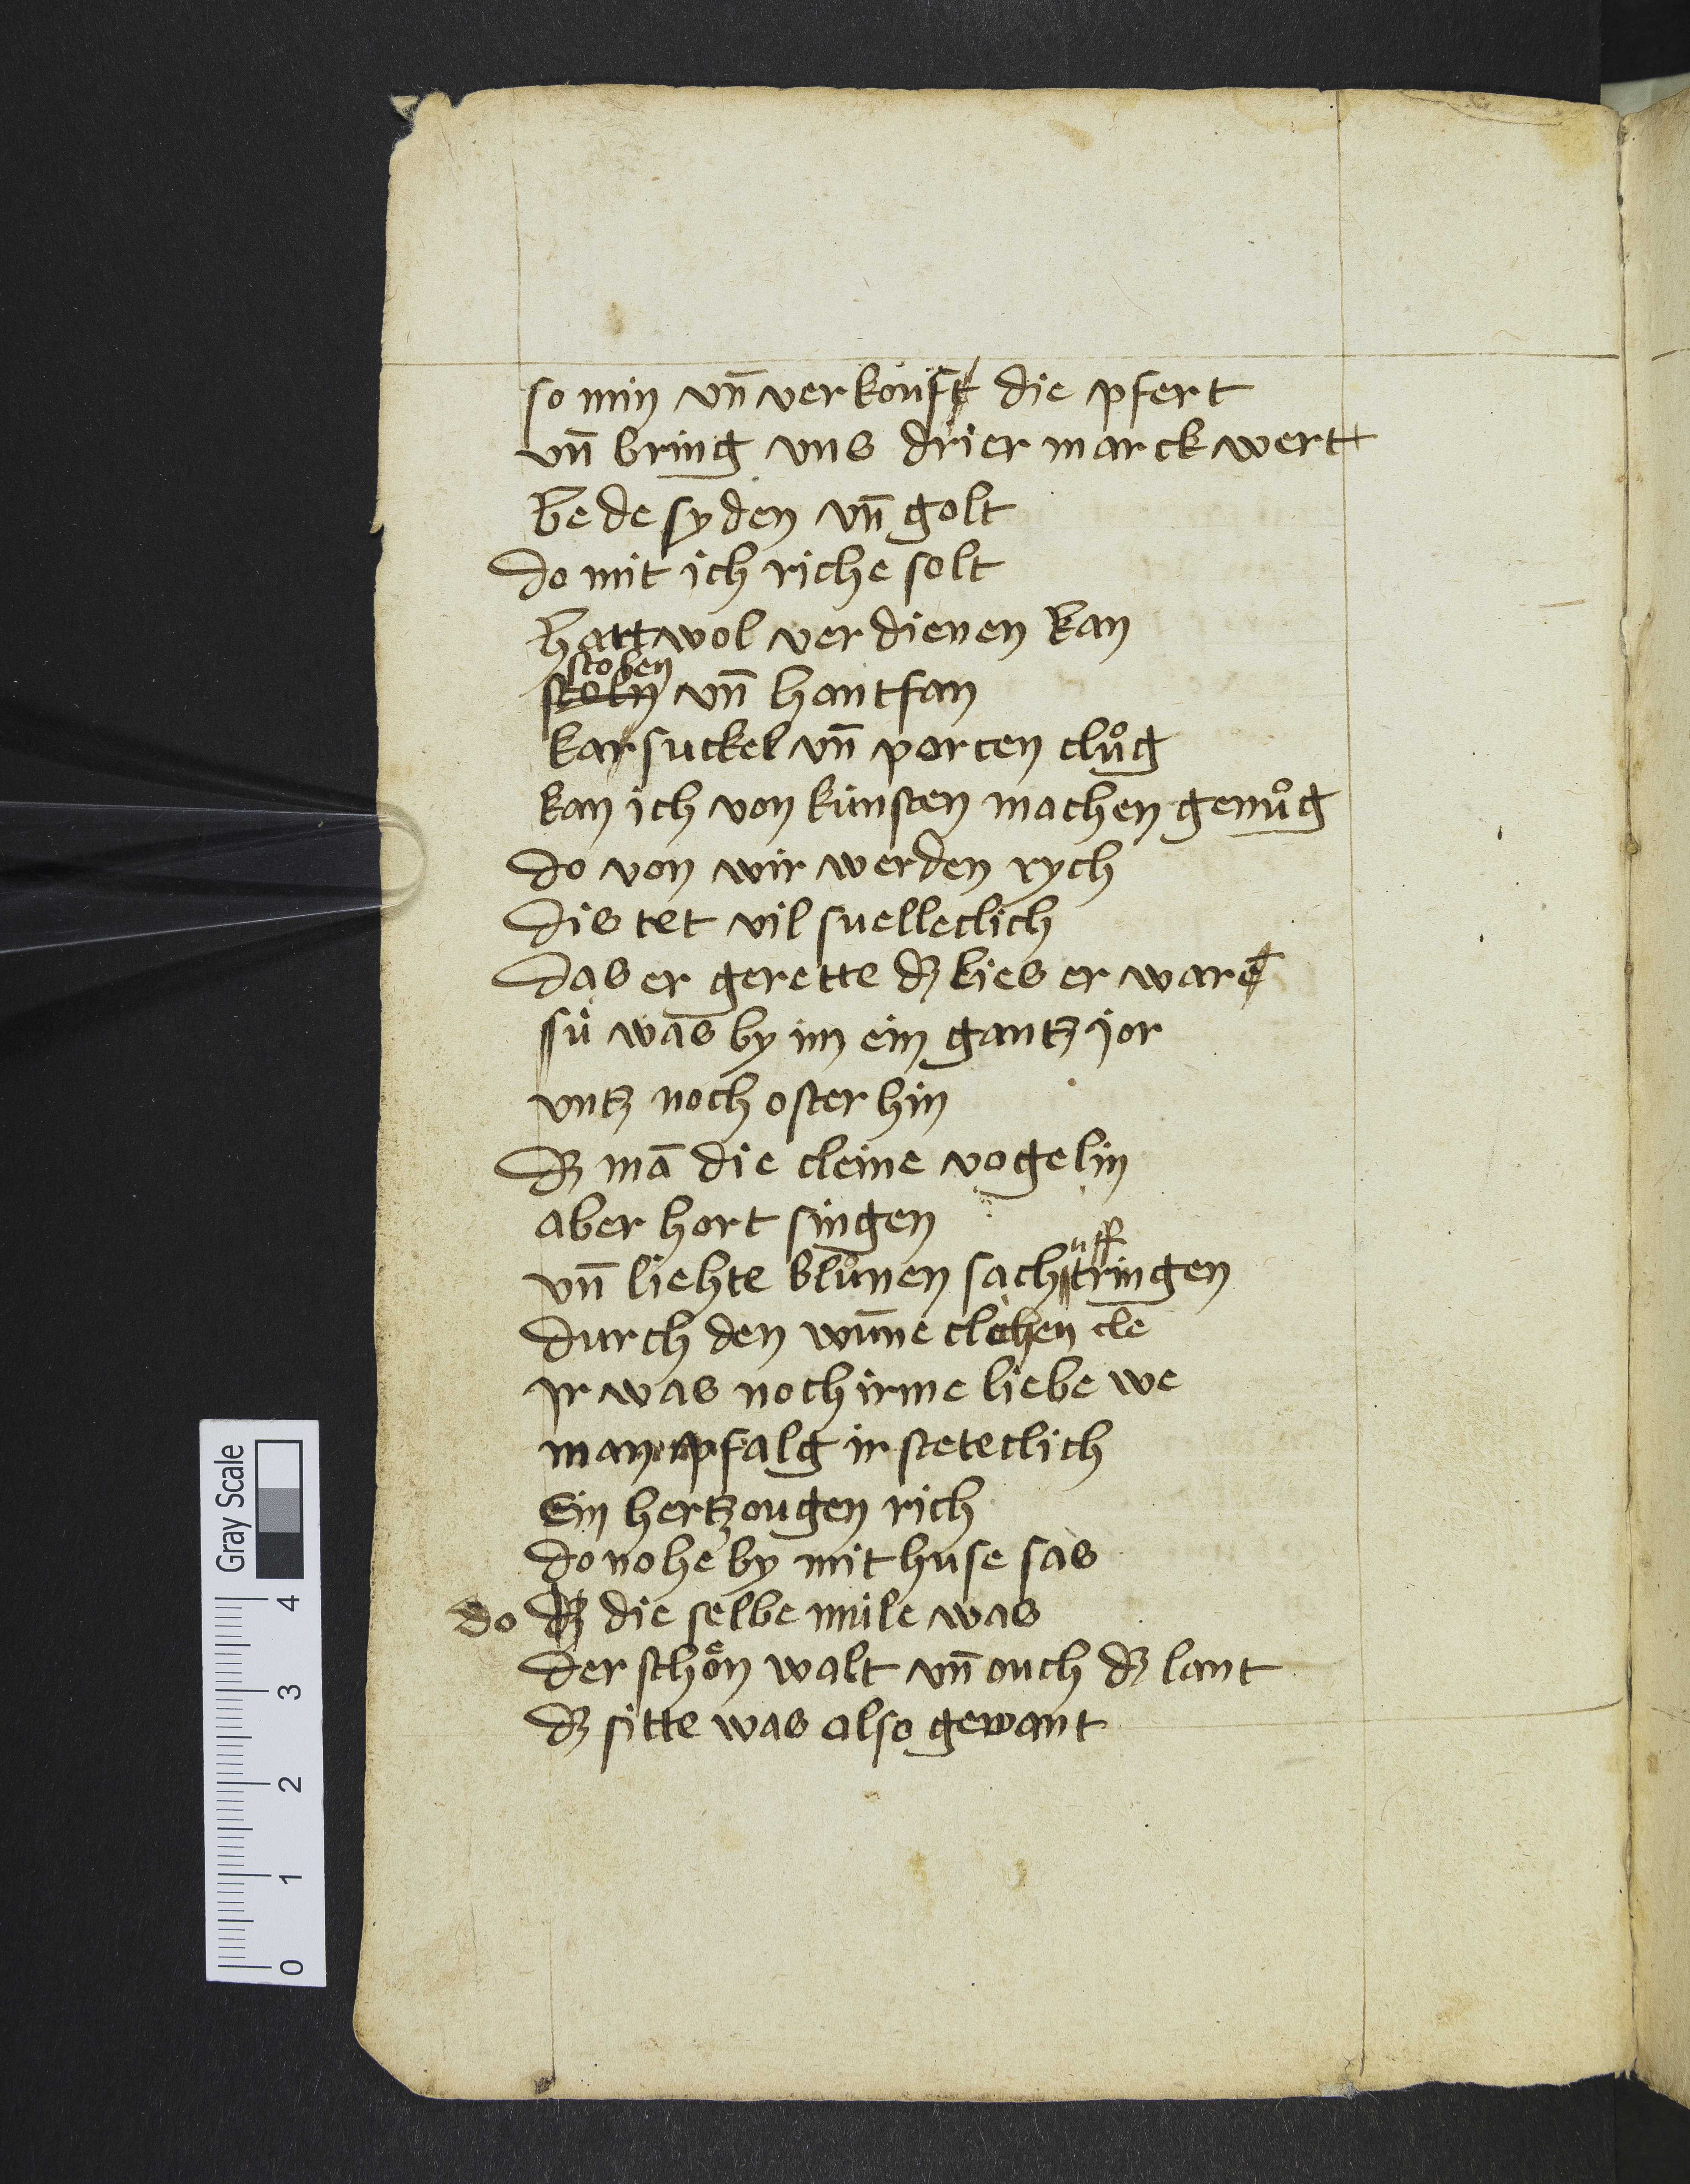 so min vn̄ verkouft die pfert
vn̄ bring vns drier marck wert
bede syden vn̄ golt
do mit ich riche solt
hart wol verdienen kan
stoben
stoln vn̄ hantfan
karsuckel vn̄ porten clůg
kan ich von künsten machen genůg
do von wir werden rych
dis tet vil snelleclich
das er gerette dz lies er ware
sü was by im ein gantz jor
vntz noch oster hin
dz mā die cleine vogelin
aber hort singen
uff
vn̄ liehte blůmen sach tringen
durch den wūneclichen cle
ir was noch irme liebe we
man pfalg ir steteclich
Ein hertzougen rich
do nohe by mit huse sas
do dz die selbe müle was
der schön walt vn̄ ouch dz lant
dz sitte was also gewant
Gray Scale
4
3
2
1
0